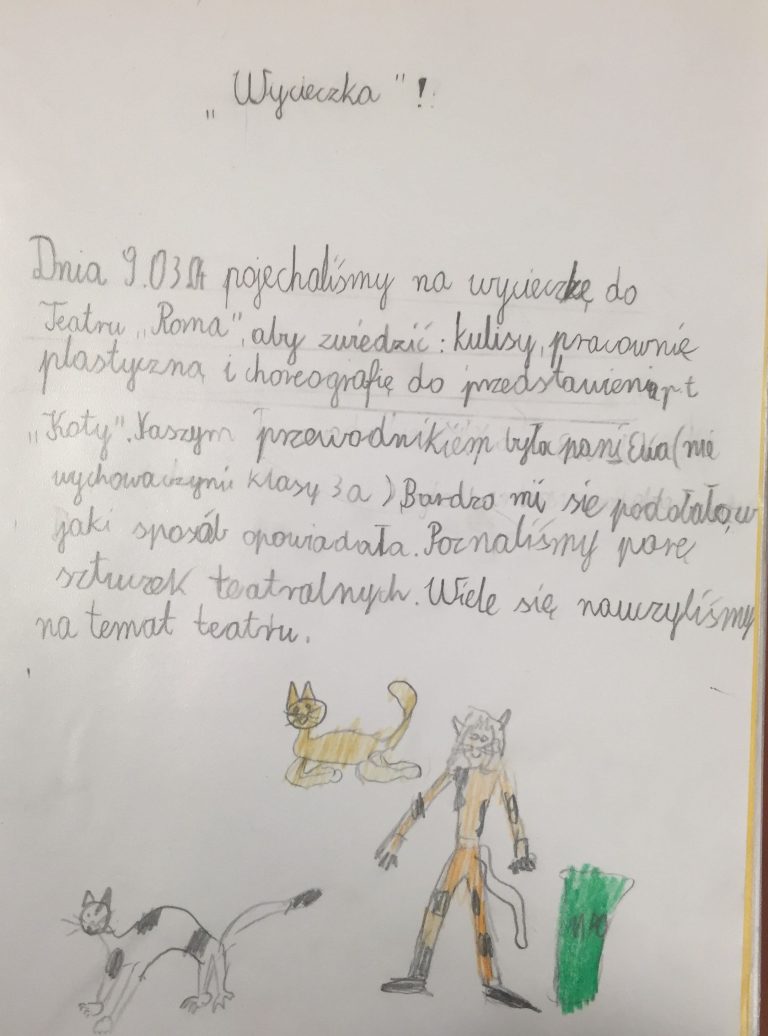 „Wycieczka"!
Dnia 9.03 pojechaliśmy na wycieczkę do
Teatru „Roma", aby zwiedzić: kulisy, pracownię
plastyczną i choreografię do przedstawienia p.t
„Koty". Naszym przewodnikiem była pani Ewa (nie
wychowaczyni klasy 3a). Bardzo mi się podobało, w
jaki sposób opowiadała. Poznaliśmy parę
sztuczek teatralnych. Wiele się nauczyliśmy
na temat teatru.